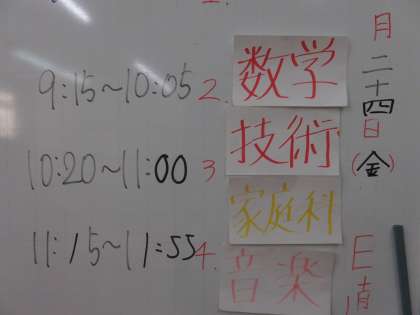 9:15~10:05 2. 数学
10:20~11:00 3 技術
家庭科
11:15~11:55 4. 音楽
月二十四日(金)
日